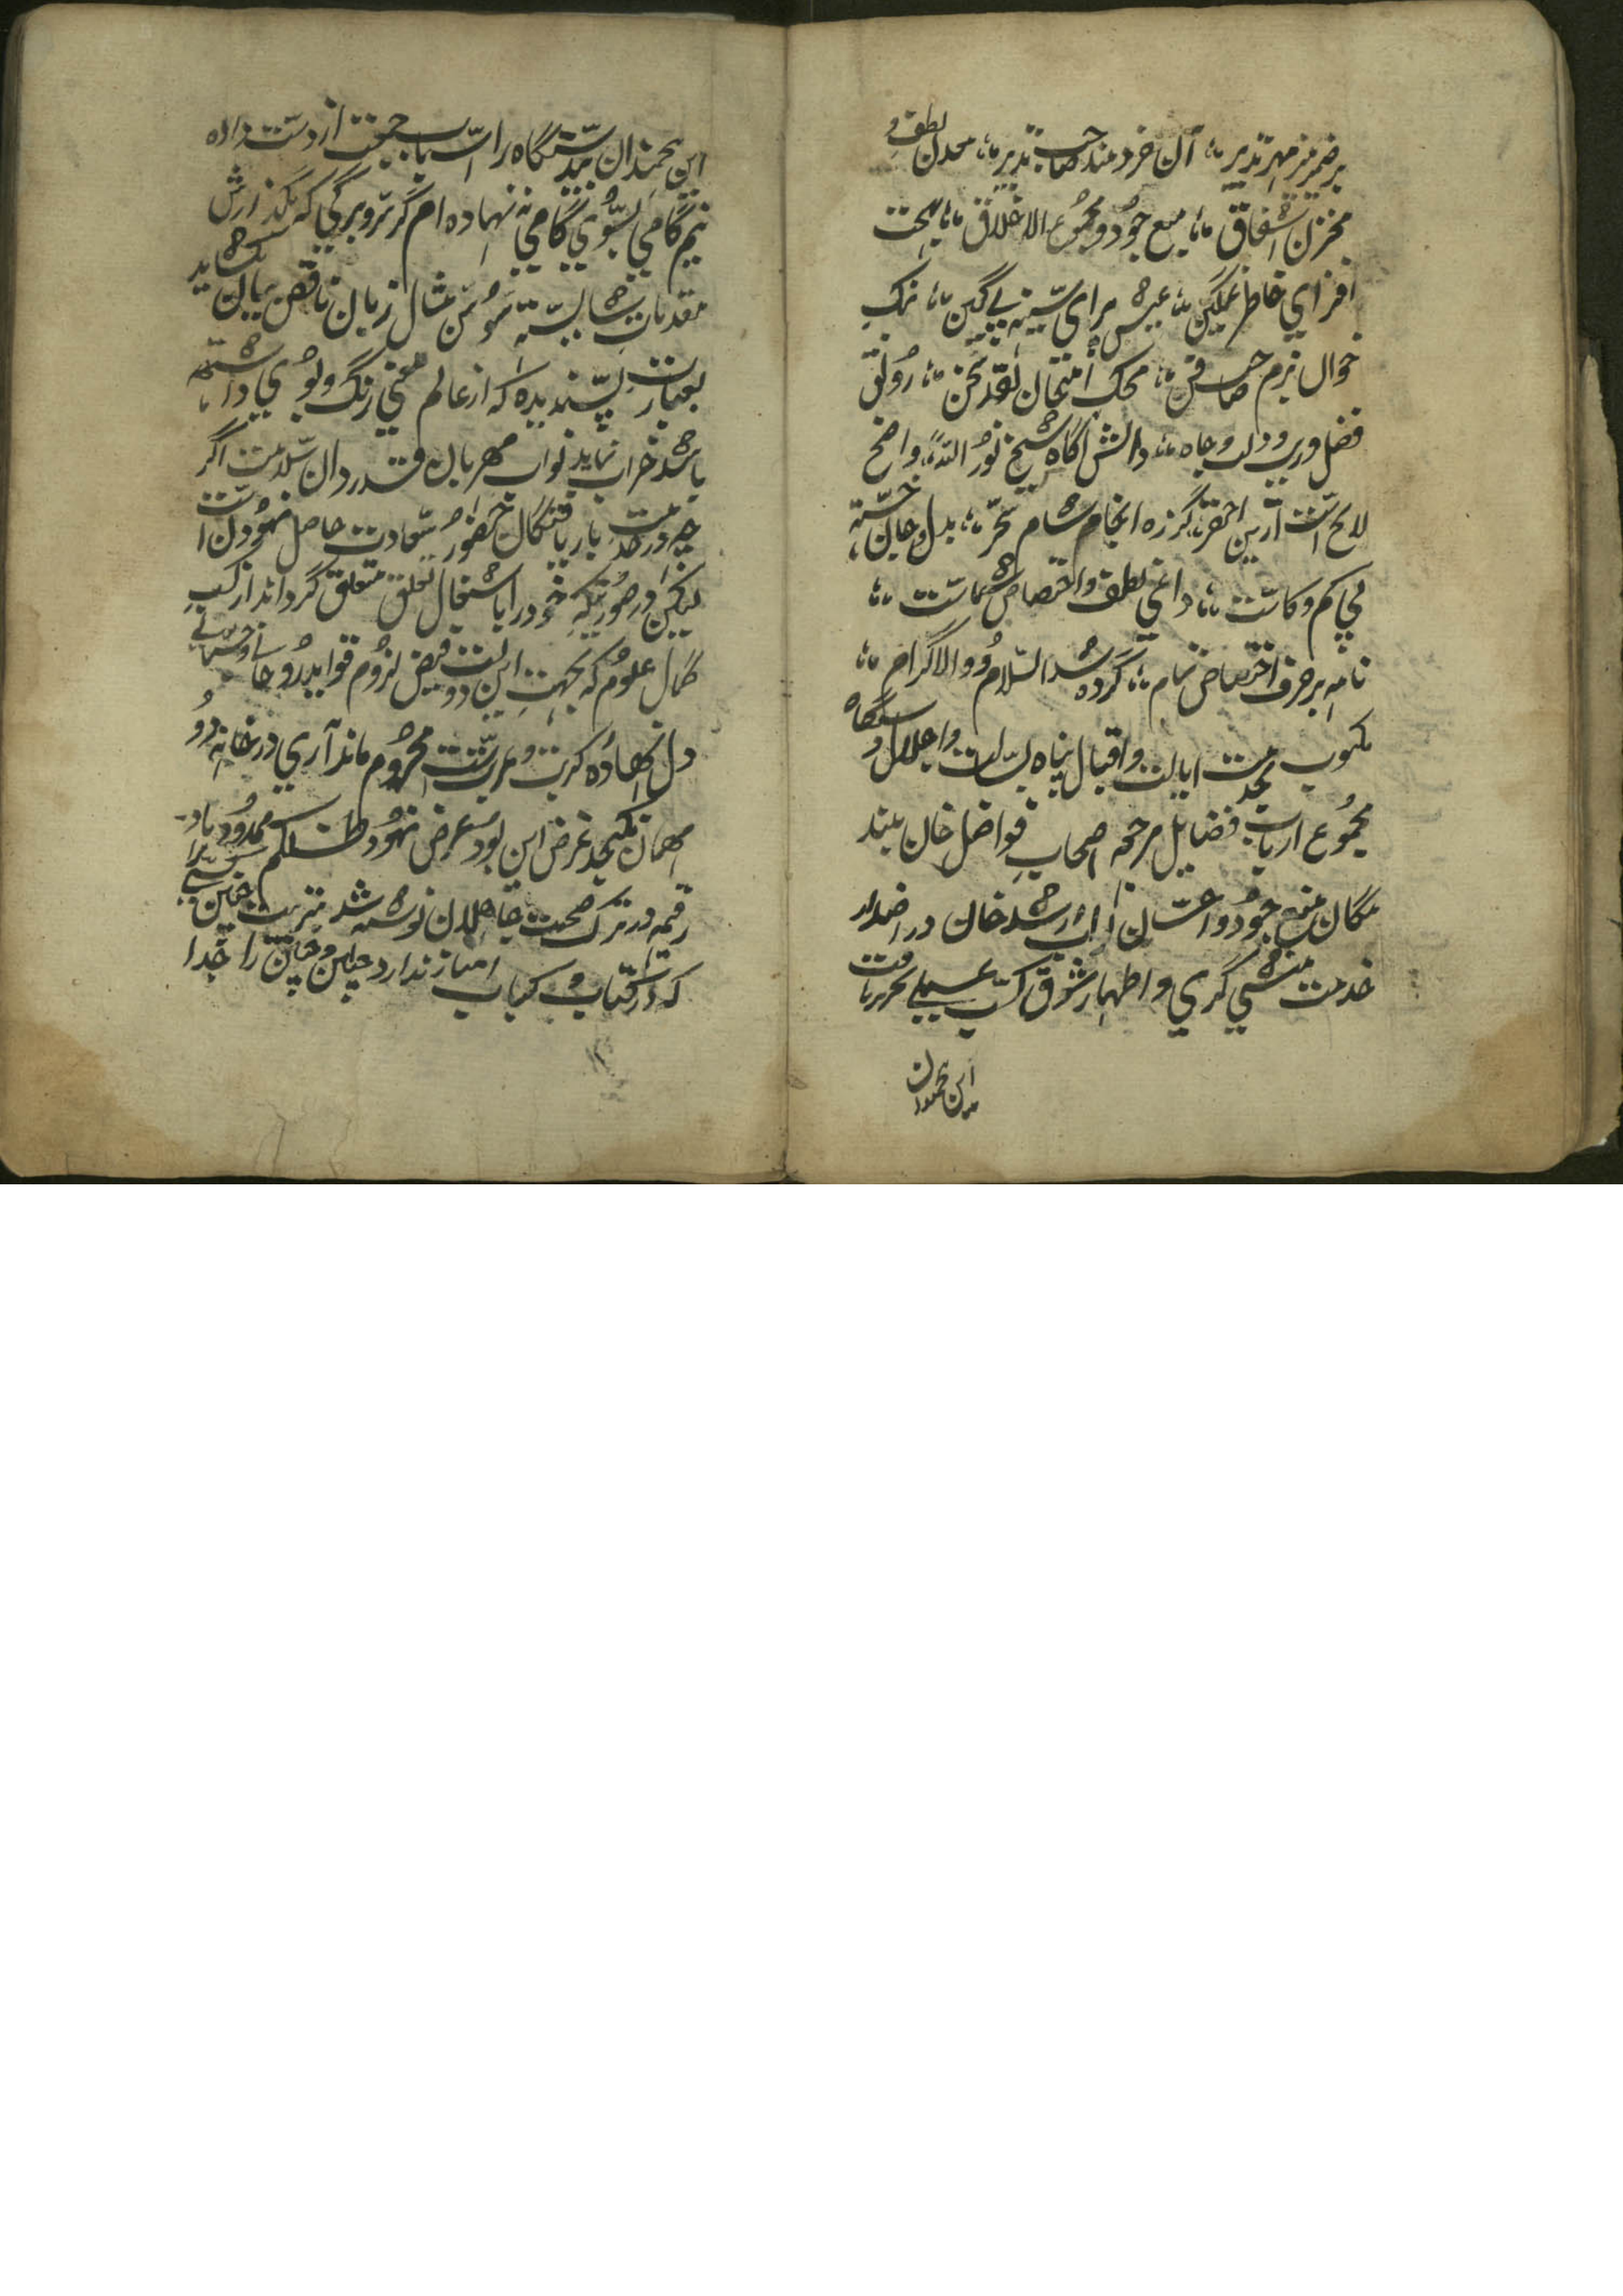 برضمیر منیر مهر تنویر ؛ آن خردمند صاحب تدبیر ؛ معدن لطف و
مخزن اشفاق ؛ منبع جود و مجموع الاخلاق ؛ بهجت
افزای خاطر غمگین ؛ عیش برای سینه بی کین ؛ نمک
خوان بزم صاحب فن ؛ محک امتحان نقد سخن ؛ رونق
فضل و دولت و جاه ؛ دانش آگاه شیخ نور الله ؛ واضح
لایح است ازین احقر ؛ کز ره انجام شام سحر ؛ بدل و جان خسته
بی کم و کاست ؛ داعی لطف و اختصاص شماست ؛
نامه بر حرف اختصاص تمام ؛ کرده شد السلام و والاکرام ؛
مکتوب بخدمت ایالت و اقبال پناه بسالت و اجلال دستگاه
مجموع ارباب فضایل مرجحه اصحاب فواضل خان بلند
مکان منبع جود و احسان نواب ارشد خان در اضداد
خدمت منشی گری و اظهار شوق کسب علمی تحریر یافت
این هیچمدان
این هیچمدان بیدستگاه را اسباب جمعیت از دست داده
نیم گامی بسوی کامی نه نهاده ام گر سر و برگی که بگذارش
مقدمات شایسته سوسن مثال زبان ناقص بیان بگشاید
بعبارت پسندیده که از عالم معنی رنگ و بوی داشته
باشد خراب نماید نواب مهربان قدردان سلامت اگر
چه در خدمت باریافتگان حضور سعادت حاصل نمودن است
لیکن در صورتیکه خود را باشغال تعلق متعلق گرداند از کسب
کمال علوم که بجهت این دولت فیض لزوم فواید روحانی و جسمانی
دل نهاده کربت و غربت است محروم ماند آری در خانه دو
مهمان نگنجد غرض این بود عرض نمود ظلکم ممدود باد
رقیمه در ترک صحبت جاهلان نوشته شد بتربیت چنین کسی چرا
که در کتاب و کباب امتیاز ندارد چنان و چنین را جدا